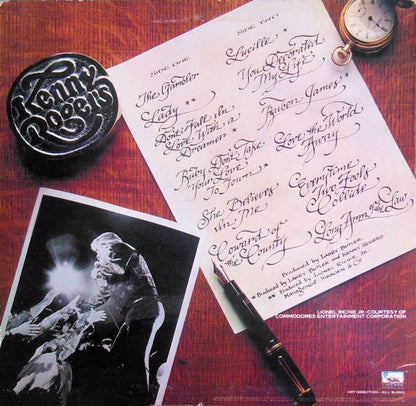 Kenny
Rogers
SIDE ONE
The Gambler
Lady **
Don't Fall In
Love With a
Dreamer *
Ruby Don't Take
Your Love
To Town *
She Believes
In Me
Coward of
the County
SIDE TWO
Lucille *
You Decorated
My Life
Reuben James *
Love the World
Away
Every Time
Two Fools
Collide
Long Arm of the Law
Produced by LARRY BUTLER
* Produced by LARRY BUTLER and KENNY ROGERS
** Produced by LIONEL RICHIE, JR.
Management: KRAGEN & CO.
LIONEL RICHIE JR. COURTESY OF
COMMODORES ENTERTAINMENT CORPORATION
ART DIRECTION - BILL BURKS